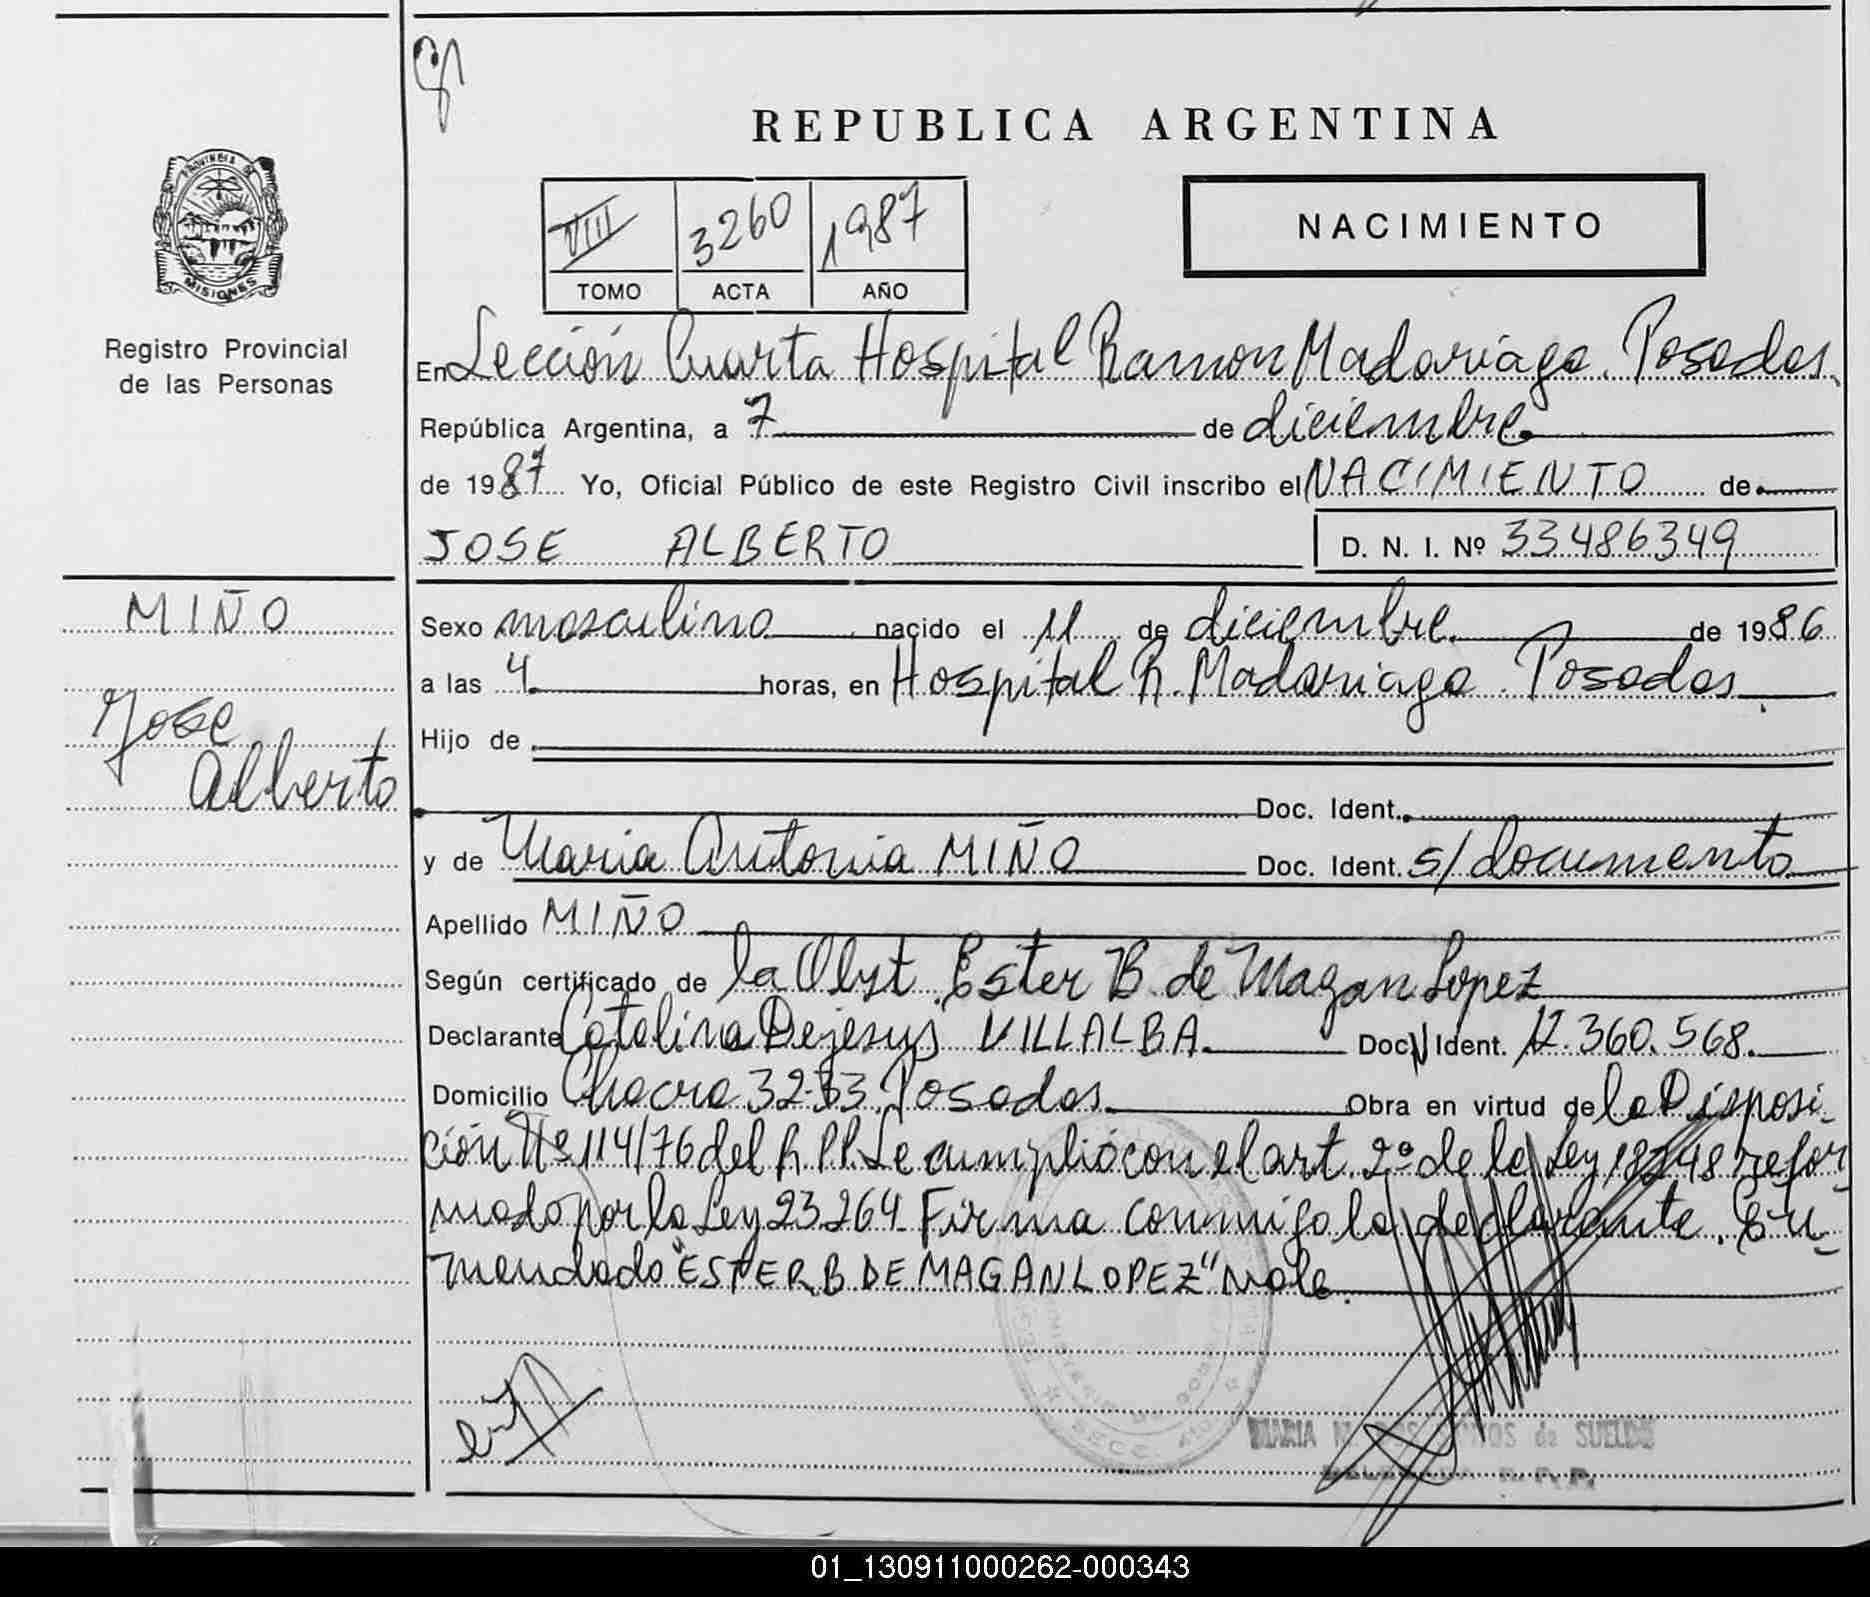 REPUBLICA ARGENTINA
PROVINCIA DE
MISIONES
Registro Provincial
de las Personas
VIII 3260 1987
TOMO ACTA AÑO
NACIMIENTO
En Sección Cuarta Hospital Ramon Madariaga. Posadas
República Argentina, a 7 de diciembre
de 1987 Yo, Oficial Público de este Registro Civil inscribo el NACIMIENTO de
JOSE ALBERTO D. N. I. Nº 33486349
MIÑO
Jose
Alberto
Sexo masculino nacido el 11 de diciembre de 1986
a las 4 horas, en Hospital R. Madariaga. Posadas
Hijo de
Doc. Ident.
y de Maria Antonia MIÑO Doc. Ident. s/documento
Apellido MIÑO
Según certificado de la Obst. Ester B. de Magan Lopez
Declarante Catalina Dejesus VILLALBA Doc N Ident. 12.360.568.
Domicilio Chacra 32-33. Posadas Obra en virtud de la Disposi-
ción Nº 114/76 del R.P.P. Se cumplió con el art. 2º de la Ley 18248 refor-
mado por la Ley 23264. Firma conmigo la declarante. En-
mendado "ESTER B. DE MAGAN LOPEZ" vale.
MARIA de SUELDO
R. P. P.
01_130911000262-000343